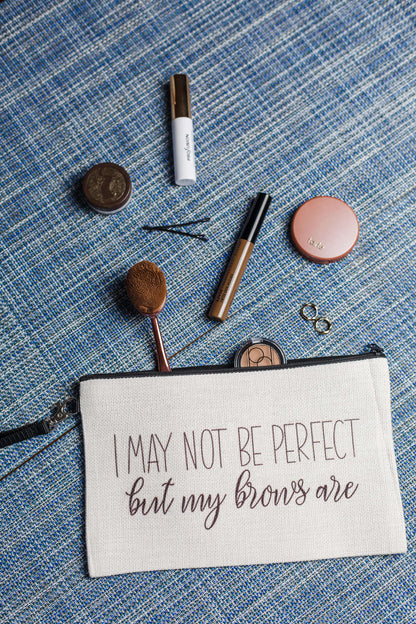 tarte
I MAY NOT BE PERFECT
but my brows are